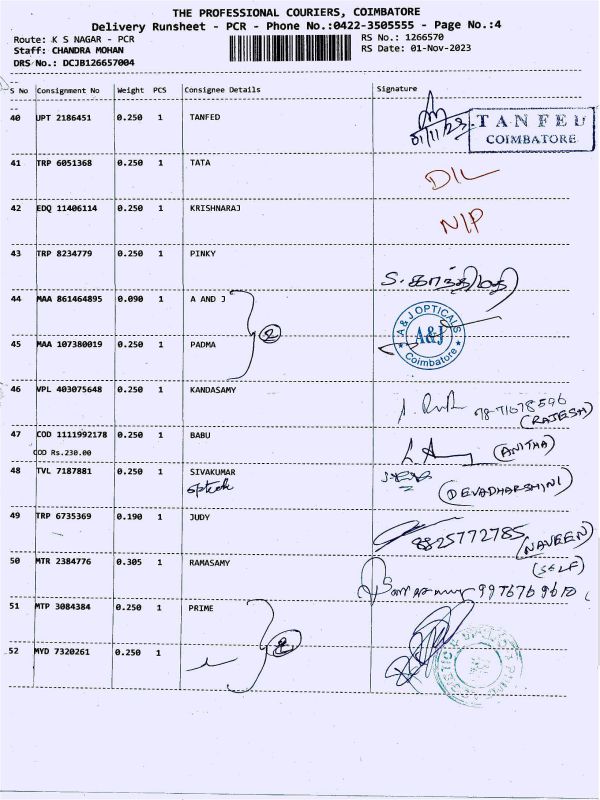 THE PROFESSIONAL COURIERS, COIMBATORE
Delivery Runsheet - PCR - Phone No.:0422-3505555 - Page No.:4
Route: K S NAGAR - PCR
RS No.: 1266570
Staff: CHANDRA MOHAN
RS Date: 01-Nov-2023
DRS No.: DCJB126657004
S No Consignment No Weight PCS Consignee Details Signature
40 UPT 2186451 0.250 1 TANFED
01/11/23
TANFED
COIMBATORE
41 TRP 6051368 0.250 1 TATA
D/L
42 EDQ 11406114 0.250 1 KRISHNARAJ
N/P
43 TRP 8234779 0.250 1 PINKY
S. காந்திமதி
44 MAA 861464895 0.090 1 A AND J
2
A & J OPTICALS
A&J
Coimbatore
45 MAA 107380019 0.250 1 PADMA
46 VPL 403075648 0.250 1 KANDASAMY
(RAJESH)
47 COD 1111992178 0.250 1 BABU
(ANITHA)
COD Rs.230.00
48 TVL 7187881 0.250 1 SIVAKUMAR
(DEVADHARSHINI)
49 TRP 6735369 0.190 1 JUDY
8825772785
(NAVEEN)
50 MTR 2384776 0.305 1 RAMASAMY
(SELF)
9976769610
51 MTP 3084384 0.250 1 PRIME
2
52 MYD 7320261 0.250 1